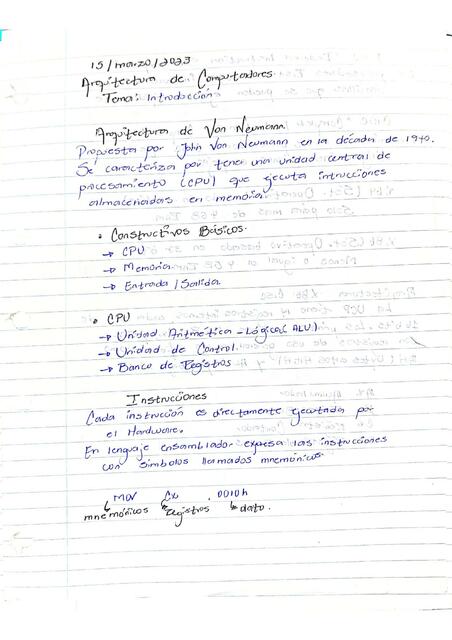 15/marzo/2023
Arquitectura de Computadores
Tema: Introducción
Arquitectura de Von Neumann
Propuesta por John Von Neumann en la década de 1940.
Se caracteriza por tener una unidad central de
procesamiento (CPU) que ejecuta intrucciones
almacenadas en memoria.
• Constructivos Básicos.
→ CPU
→ Memoria
→ Entrada/Salida
• CPU
→ Unidad Aritmética-Lógica (ALU)
→ Unidad de Control.
→ Banco de Registros
Instrucciones
Cada instrucción es directamente ejecutada por
el Hardware.
En lenguaje ensamblador expresa las instrucciones
con simbolos llamados mnemónicos
MOV Cx, 0010h
mnemónicos registros dato.